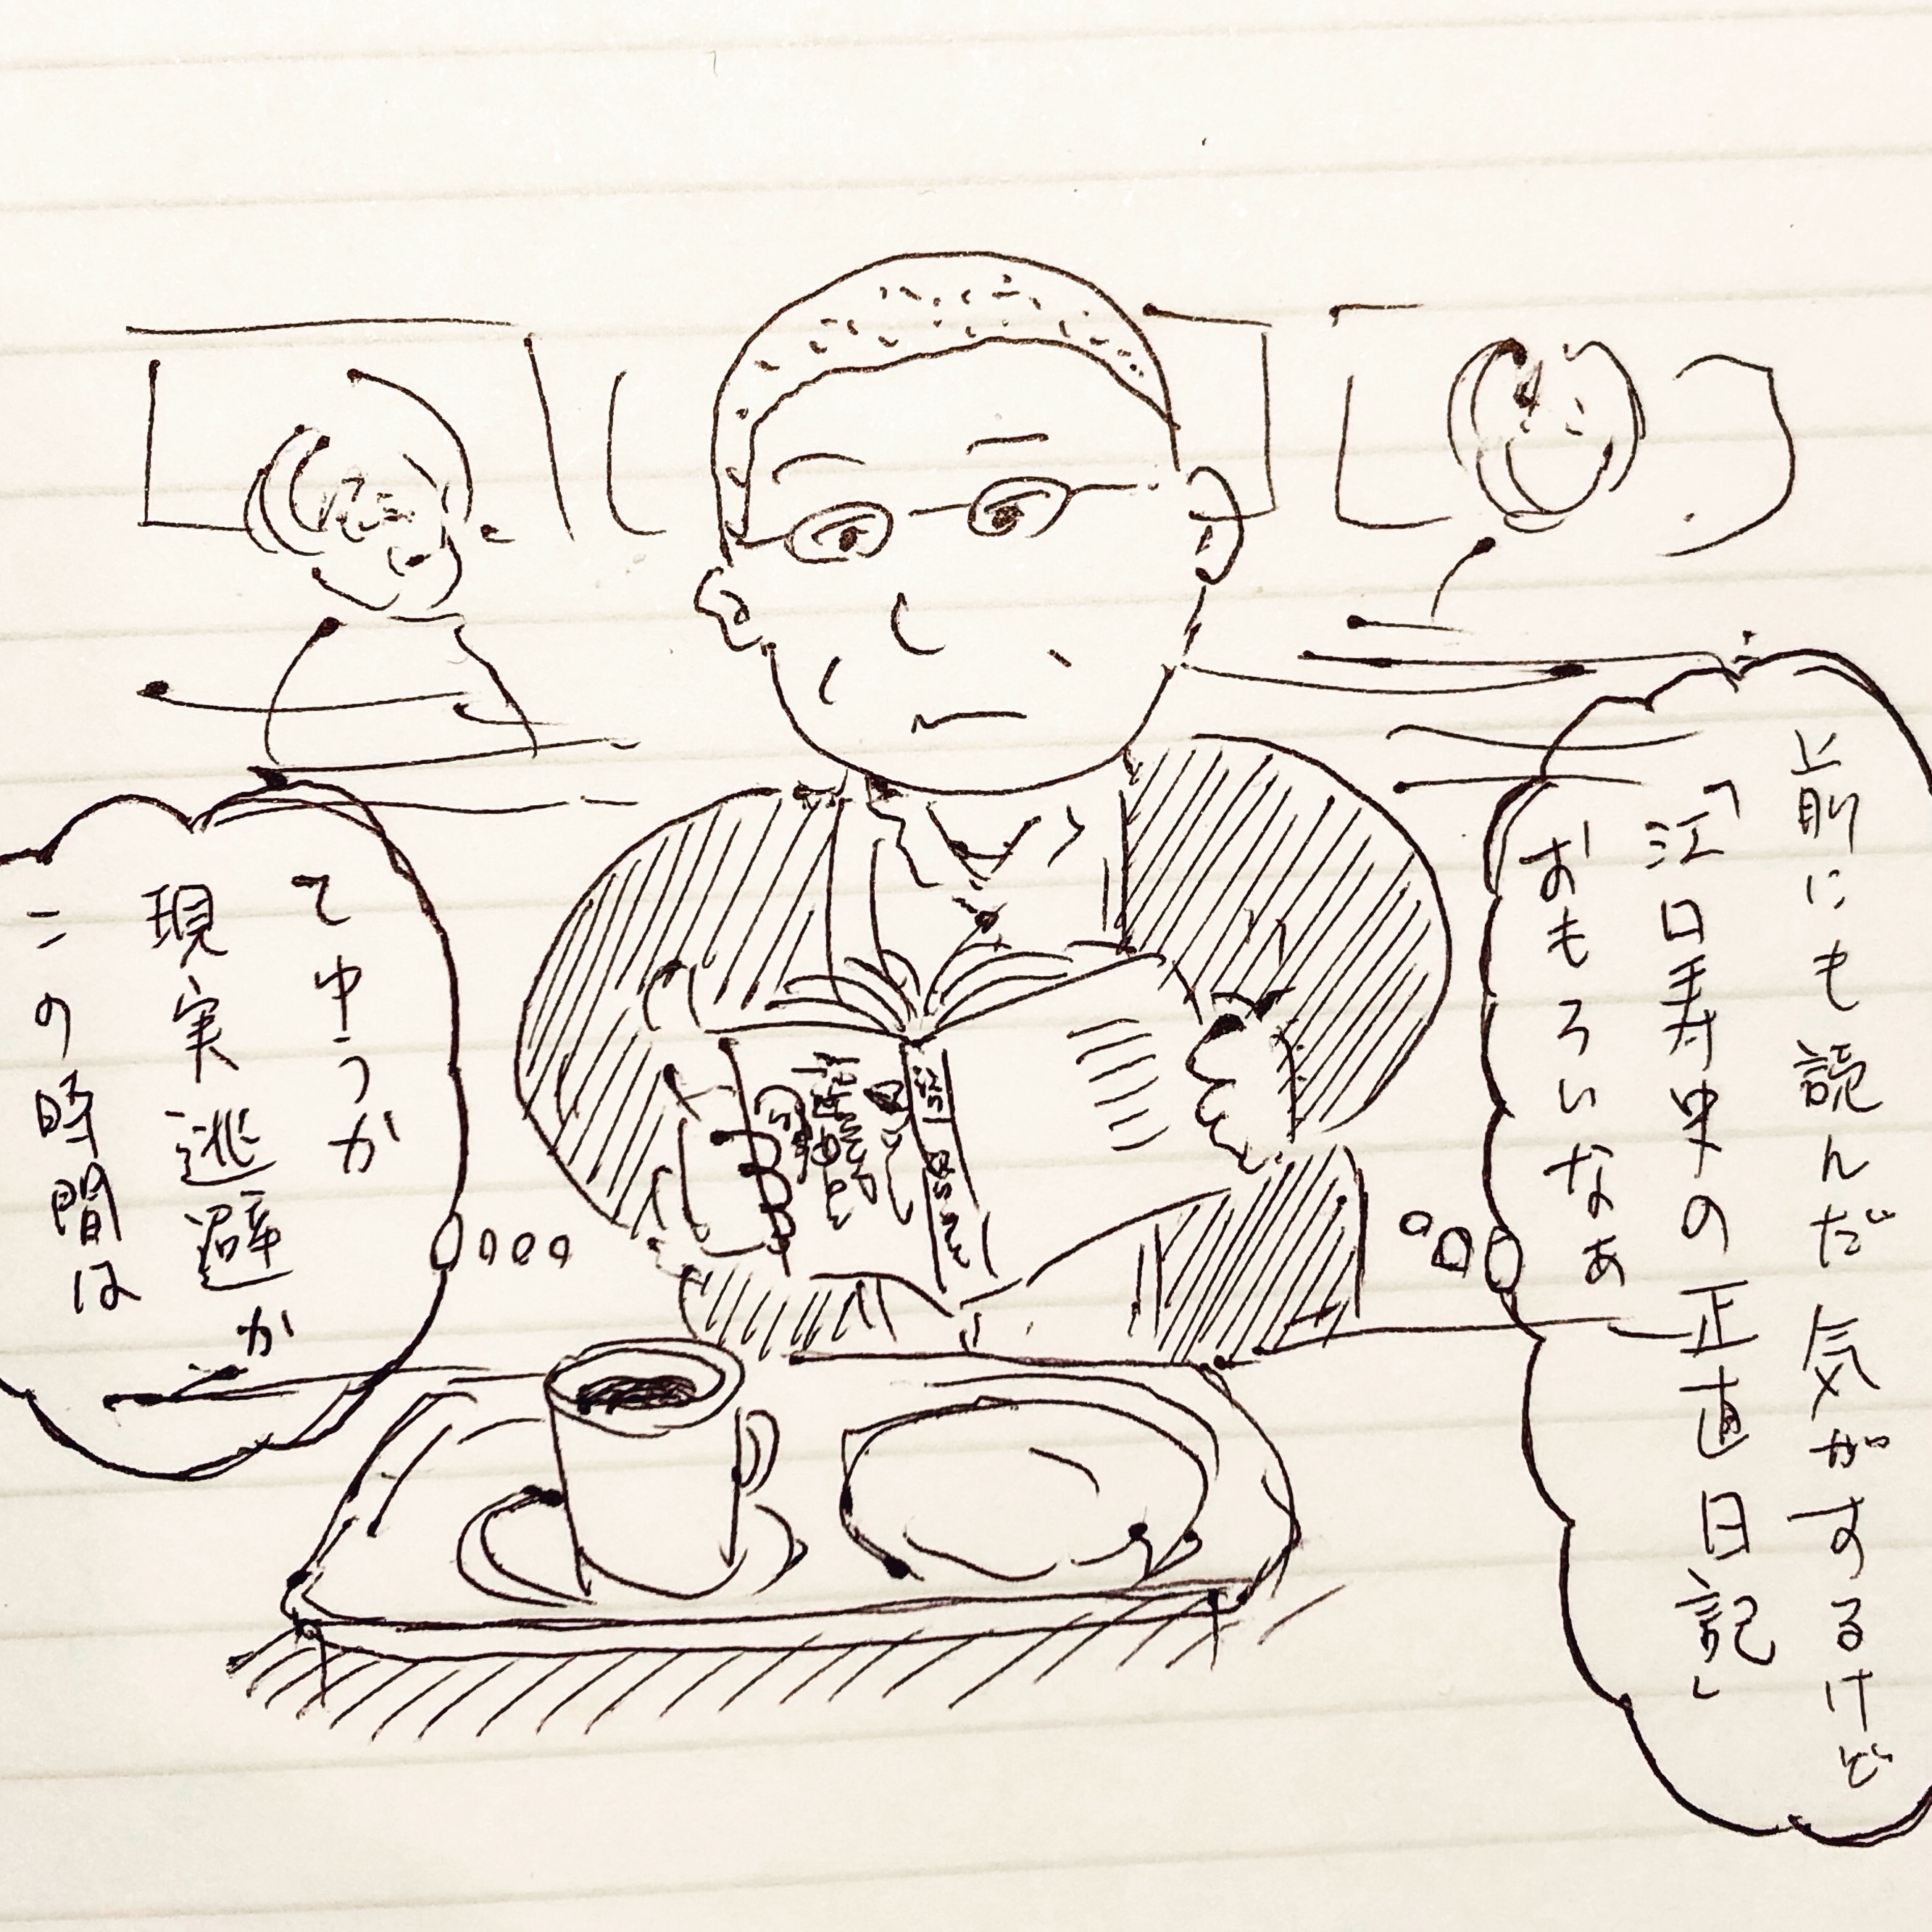 以前にも読んだ気がするけど
「江口寿史の正直日記」
おもろいなあ
てゆうか
現実逃避か
この時間は